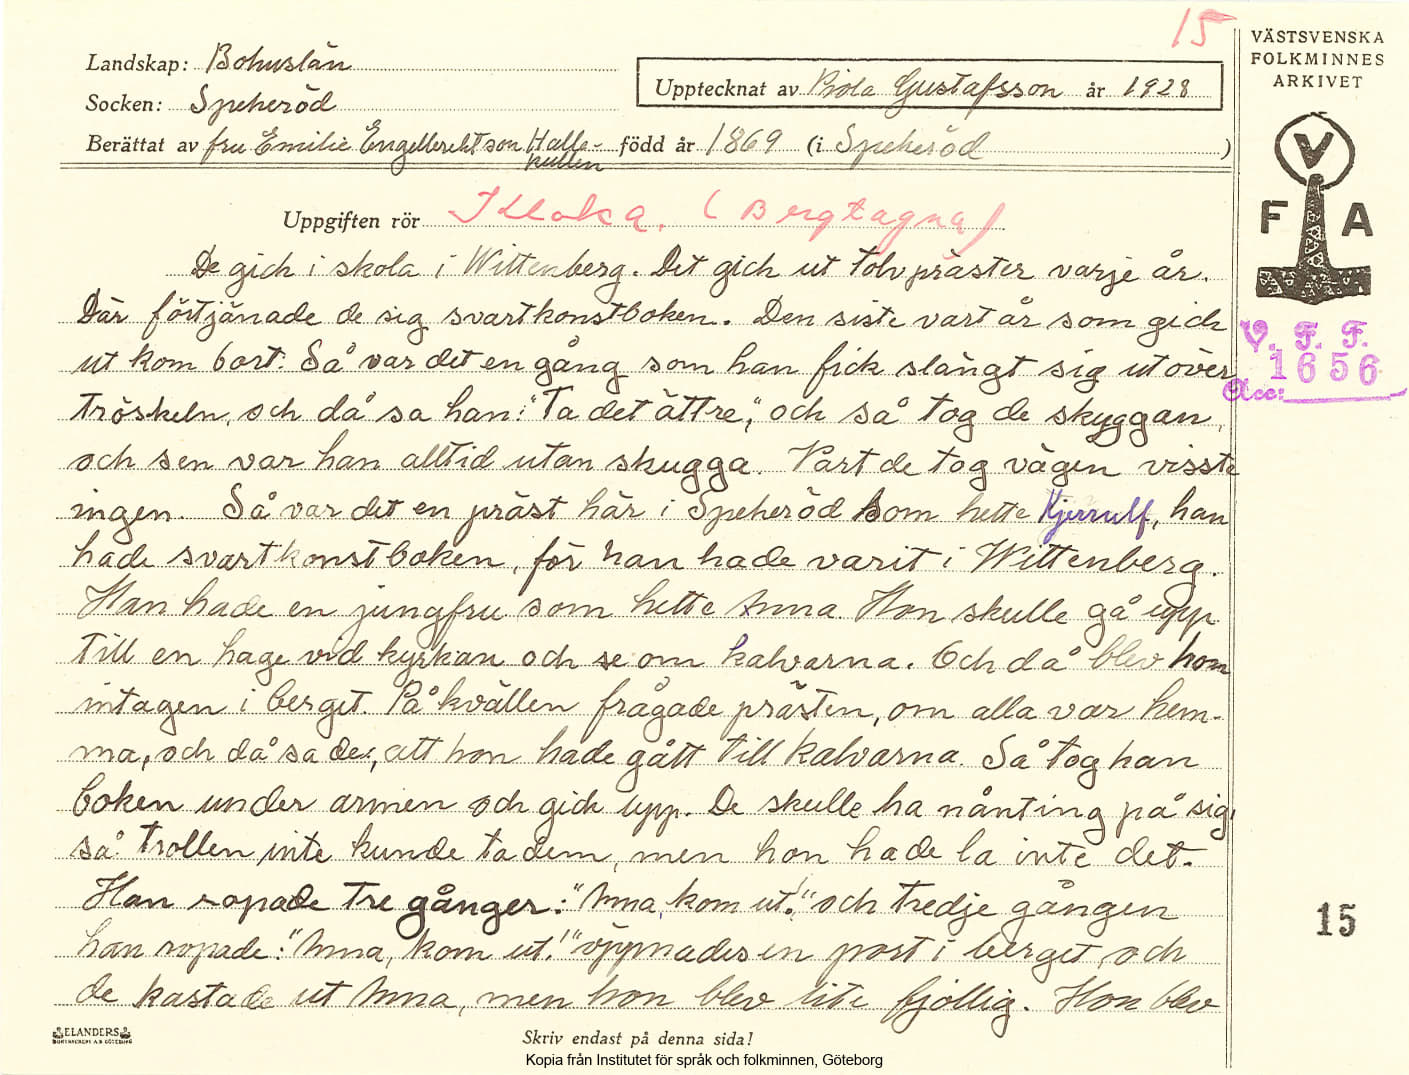 15
VÄSTSVENSKA
FOLKMINNES
ARKIVET
Landskap: Bohuslän
Upptecknat av Viola Gustafsson år 1928
Socken: Spekeröd
Berättat av fru Emilie Engelbrektson Halle-kullen född år 1869 (i Spekeröd )
V
F A
Uppgiften rör I Kloka. (Bergtagna)
De gick i skola i Wittenberg. Det gick ut tolv präster varje år.
Där förtjänade de sig svartkonstboken. Den siste vart år som gick
ut kom bort. Så var det en gång som han fick slängt sig utöver
tröskeln, och då sa han: "Ta det ättre", och så tog de skyggan,
och sen var han alltid utan skugga. Vart de tog vägen visste
ingen. Så var det en präst här i Spekeröd som hette Kjerrulf, han
hade svartkonstboken, för han hade varit i Wittenberg.
Han hade en jungfru som hette Anna. Hon skulle gå upp
till en hage vid kyrkan och se om kalvarna. Och då blev hon
intagen i berget. På kvällen frågade prästen, om alla var hem-
ma, och då sa de, att hon hade gått till kalvarna. Så tog han
boken under armen och gick upp. De skulle ha nånting på sig,
så trollen inte kunde ta dem, men hon hade la inte det.
Han ropade tre gånger: "Anna, kom ut!" och tredje gången
han ropade: "Anna, kom ut!" öppnades en port i berget, och
de kastade ut Anna, men hon blev lite fjollig. Hon blev
V. F. F.
1656
Acc:
15
ELANDERS
BOKTRYCKERI A.B. GÖTEBORG
Skriv endast på denna sida!
Kopia från Institutet för språk och folkminnen, Göteborg